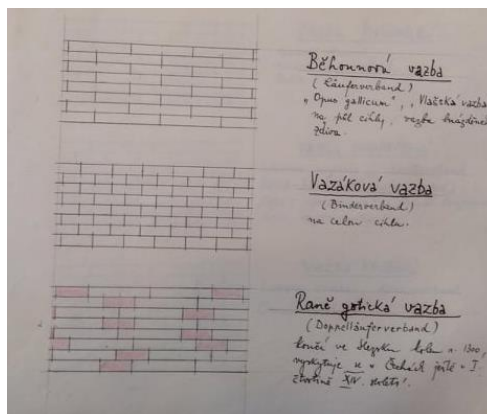 Běhounová vazba
(Läuferverband)
"Opus gallicum", Vlašská vazba
na půl cihly, vazba
zdiva.
Vazáková vazba
(Binderverband)
na celou cihlu.
Raně gotická vazba
(Doppelläuferverband)
končí ve Slezsku kolem r. 1300,
vyskytuje v Čechách ještě v I.
čtvrtině XIV. století.